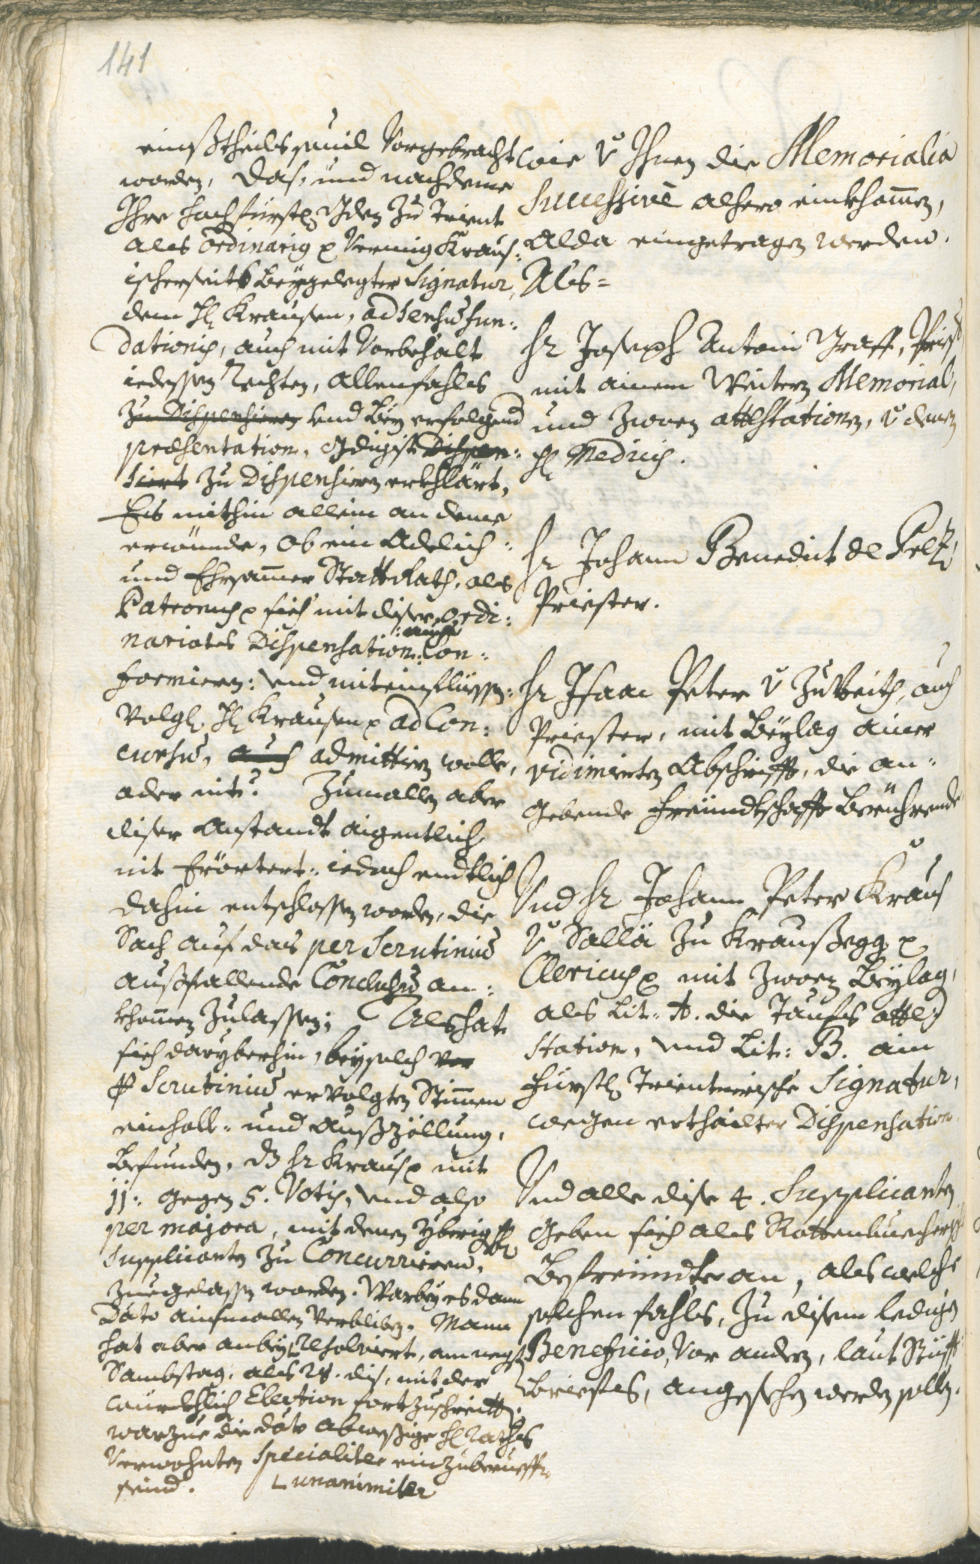 141
einßtheils souil Vorgebracht
worden, Das, und nachdeme
Ihre hochfürstl: Gden Zu Trient
als Ordinarig p Vermig Kraus:
ischerseits beygelegter Signatur,
dem H: Krausen, ad sensus fun:
dationis, auch mit Vorbehalt
iedessen Rechten, allenfahls
Zu Dispensieren vnd bey erfolgend
præsentation, Gdigist Dispen:
siert zu Dispensiern erkhlärt,
Es mithin allein an deme
erwünde, ob ein Adelich:
und Ehrsammer Statt Rath, als
Patronus p sich mit diser Ordi:
nariats Dispensation: auch Con:
formieren: vnd
volgl: H: Krausen p ad Con:
cursus, auch admittirn wolle,
oder nit? Zumallen aber
diser Anstandt aigentlich
nit Erörtert: iedoch endtlich
dahin entschlossen worden, die
Sach auf das per Scrutinius
außfallende Conclusus an:
khommen Zulassen; Als hat
sich darüberhin, bey solch vor
p Scrutinius ervolgten Stimmen
einholl: und Außzöllung,
befunden, dz Hr Kraus p mit
11: gegen 5. Votis, vnd also
per majora, mit denen yberigen
Supplicanten Zu Concurrieren,
Zuegelassen worden. Warbey es dann
Dato ainsmallen verbliben. Mann
hat aber anbey Resolviert, am negst
Sambstag, als 28. dis, mit der
würkhlich Election fortzuschreitten,
warzue die dato abwesige H: Raths
Verwohnten Specialiter einzuberueffen
seind. unanimiter
wie v Ihnen die Memorialia
Successivè alhero einkhommen,
Alda eingetragen werden.
Als=
Hr Joseph Antoni Graff, Priest
mit ainem Weitern Memorial,
und Zwoen attestationen, v denen
H: Medicis.
Hr Johann Benedict de Pelz
Priester.
Hr Isaac Peter v Zu Veith, auch
Priester, mit Beylag ainer
vidimierten Abschrifft, die an:
gebende Freundtschafft berührend
Vnd Hr Johann Peter Kraus
v Sallä Zu Kraußegg p
Clericus p mit Zwoen Beylag,
als Lit: A. die Taufs atte:
station, vnd Lit: B. ain
Fürstl Trienterische Signatur,
wegen erthailter Dispensation.
Vnd alle dise 4. Supplicanten
geben sich als Rottenbuecher:
Befreundte an, als welche
solchen fahls, Zu disem ledigen
Beneficio, vor andern, laut Stüfft
Briefes, angesehen werden sollen.